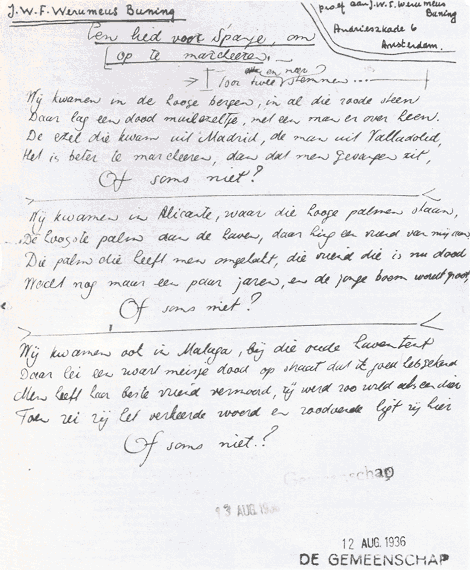 J.W.F. Werumeus Buning
proef aan J.W.F. Werumeus
Buning
Andrieszkade 6
Amsterdam.
Een lied voor Spanje, om
op te marcheeren.
en meer?
Voor twee stemmen ...
Wij kwamen in de hooge bergen, in al die roode steen
Daar lag een dood muilezeltje, met een man er over heen.
De ezel die kwam uit Madrid, de man uit Valladolid,
Het is beter te marcheeren, dan dat men gevangen zit,
Of soms niet?
Wij kwamen in Alicante, waar die hooge palmen staan,
De hoogste palm aan de haven, daar hing een vriend van mij aan
Die palm die heeft men omgehakt, die vriend die is nu dood
Wacht nog maar een paar jaren, en de jonge boom wordt groot,
Of soms niet?
Wij kwamen ook in Malaga, bij die oude haventent
Daar lei een zwart meisje dood op straat dat ik goed heb gekend
Men heeft haar beste vriend vermoord, zij werd zoo wild als een dier
Toen zei zij het verkeerde woord en roodvoerde ligt zij hier
Of soms niet?
Gemeenschap
13 AUG. 1936
12 AUG. 1936
DE GEMEENSCHAP